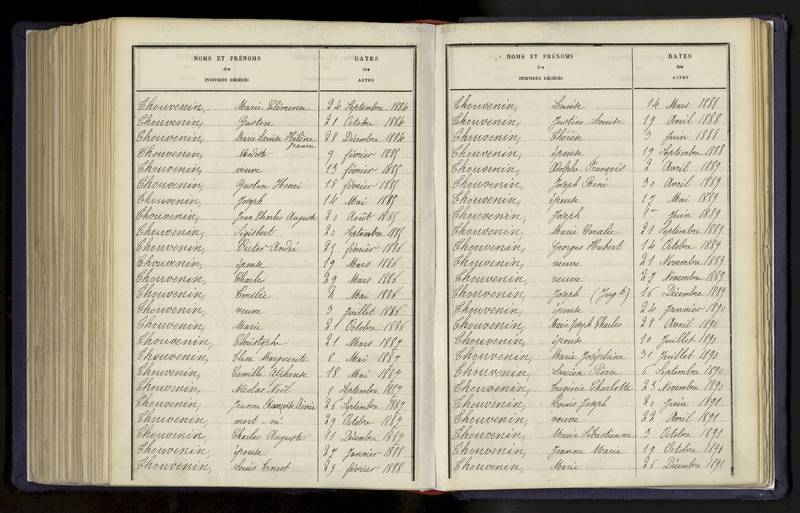 NOMS ET PRÉNOMS
des
INDIVIDUS DÉCÉDÉS
DATES
des
ACTES
Thouvenin, Marie Clémence 24 Septembre 1884
Thouvenin, Gaston 21 Octobre 1884
Thouvenin, Marie Louise Hélène Jeanne 28 Décembre 1884
Thouvenin, 9 février 1885
Thouvenin, veuve 13 février 1885
Thouvenin, Gaston Henri 18 février 1885
Thouvenin, Joseph 14 Mai 1885
Thouvenin, Jean Charles Auguste 20 Août 1885
Thouvenin, Sigisbert 20 Septembre 1885
Thouvenin, Victor André 25 février 1886
Thouvenin, épouse 19 Mars 1886
Thouvenin, Charles 29 Mars 1886
Thouvenin, Emélie 2 Mai 1886
Thouvenin, veuve 3 Juillet 1886
Thouvenin, Marie 21 Octobre 1886
Thouvenin, Christophe 21 Mars 1887
Thouvenin, Elisa Marguerite 8 Mai 1887
Thouvenin, Camille Alphonse 18 Mai 1887
Thouvenin, Nicolas Noël Septembre 1887
Thouvenin, Jeanne Françoise 26 Septembre 1887
Thouvenin, mort-né 29 Octobre 1887
Thouvenin, Charles Auguste 11 Décembre 1887
Thouvenin, épouse 27 Janvier 1888
Thouvenin, Louis Ernest 23 février 1888
NOMS ET PRÉNOMS
des
INDIVIDUS DÉCÉDÉS
DATES
des
ACTES
Thouvenin, Louise 14 Mars 1888
Thouvenin, Justine Louise 19 Avril 1888
Thouvenin, Thérèse 3 Juin 1888
Thouvenin, épouse 19 Septembre 1888
Thouvenin, Adolphe François 2 Avril 1889
Thouvenin, Joseph 30 Avril 1889
Thouvenin, épouse 17 Mai 1889
Thouvenin, Joseph Juin 1889
Thouvenin, Marie 21 Septembre 1889
Thouvenin, Georges Hubert 14 Octobre 1889
Thouvenin, veuve 21 Novembre 1889
Thouvenin, veuve 27 Novembre 1889
Thouvenin, Joseph (Jugt) 16 Décembre 1889
Thouvenin, épouse 24 Janvier 1890
Thouvenin, Marie Joseph Charles 28 Avril 1890
Thouvenin, épouse 10 Juillet 1890
Thouvenin, Marie Joséphine 31 Juillet 1890
Thouvenin, Lucien Pierre 6 Septembre 1890
Thouvenin, Eugénie Charlotte 23 Novembre 1890
Thouvenin, Louis Joseph 20 Juin 1891
Thouvenin, veuve 22 Avril 1891
Thouvenin, Marie Sébastienne 3 Octobre 1891
Thouvenin, Jeanne Marie 19 Octobre 1891
Thouvenin, Marie 26 Décembre 1891